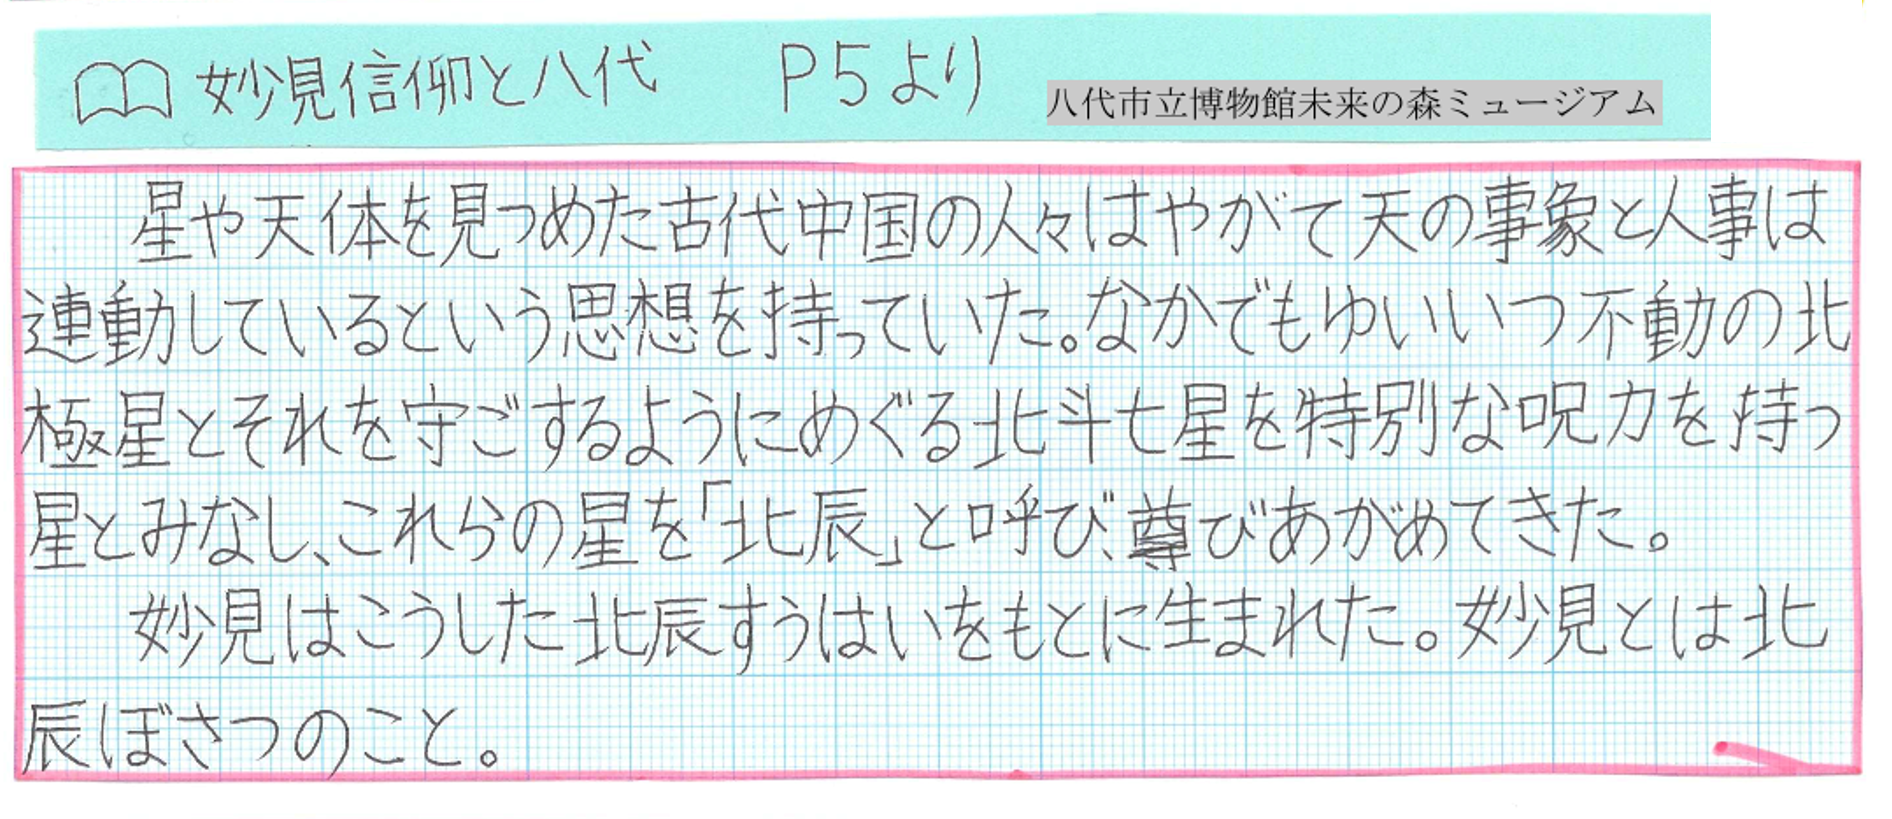 妙見信仰と八代　P5より　八代市立博物館未来の森ミュージアム
星や天体を見つめた古代中国の人々はやがて天の事象と人事は
連動しているという思想を持っていた。なかでもゆいいつ不動の北
極星とそれを守ごするようにめぐる北斗七星を特別な呪力を持っ
星とみなし、これらの星を「北辰」と呼び、尊びあがめてきた。
妙見はこうした北辰すうはいをもとに生まれた。妙見とは北
辰ぼさつのこと。